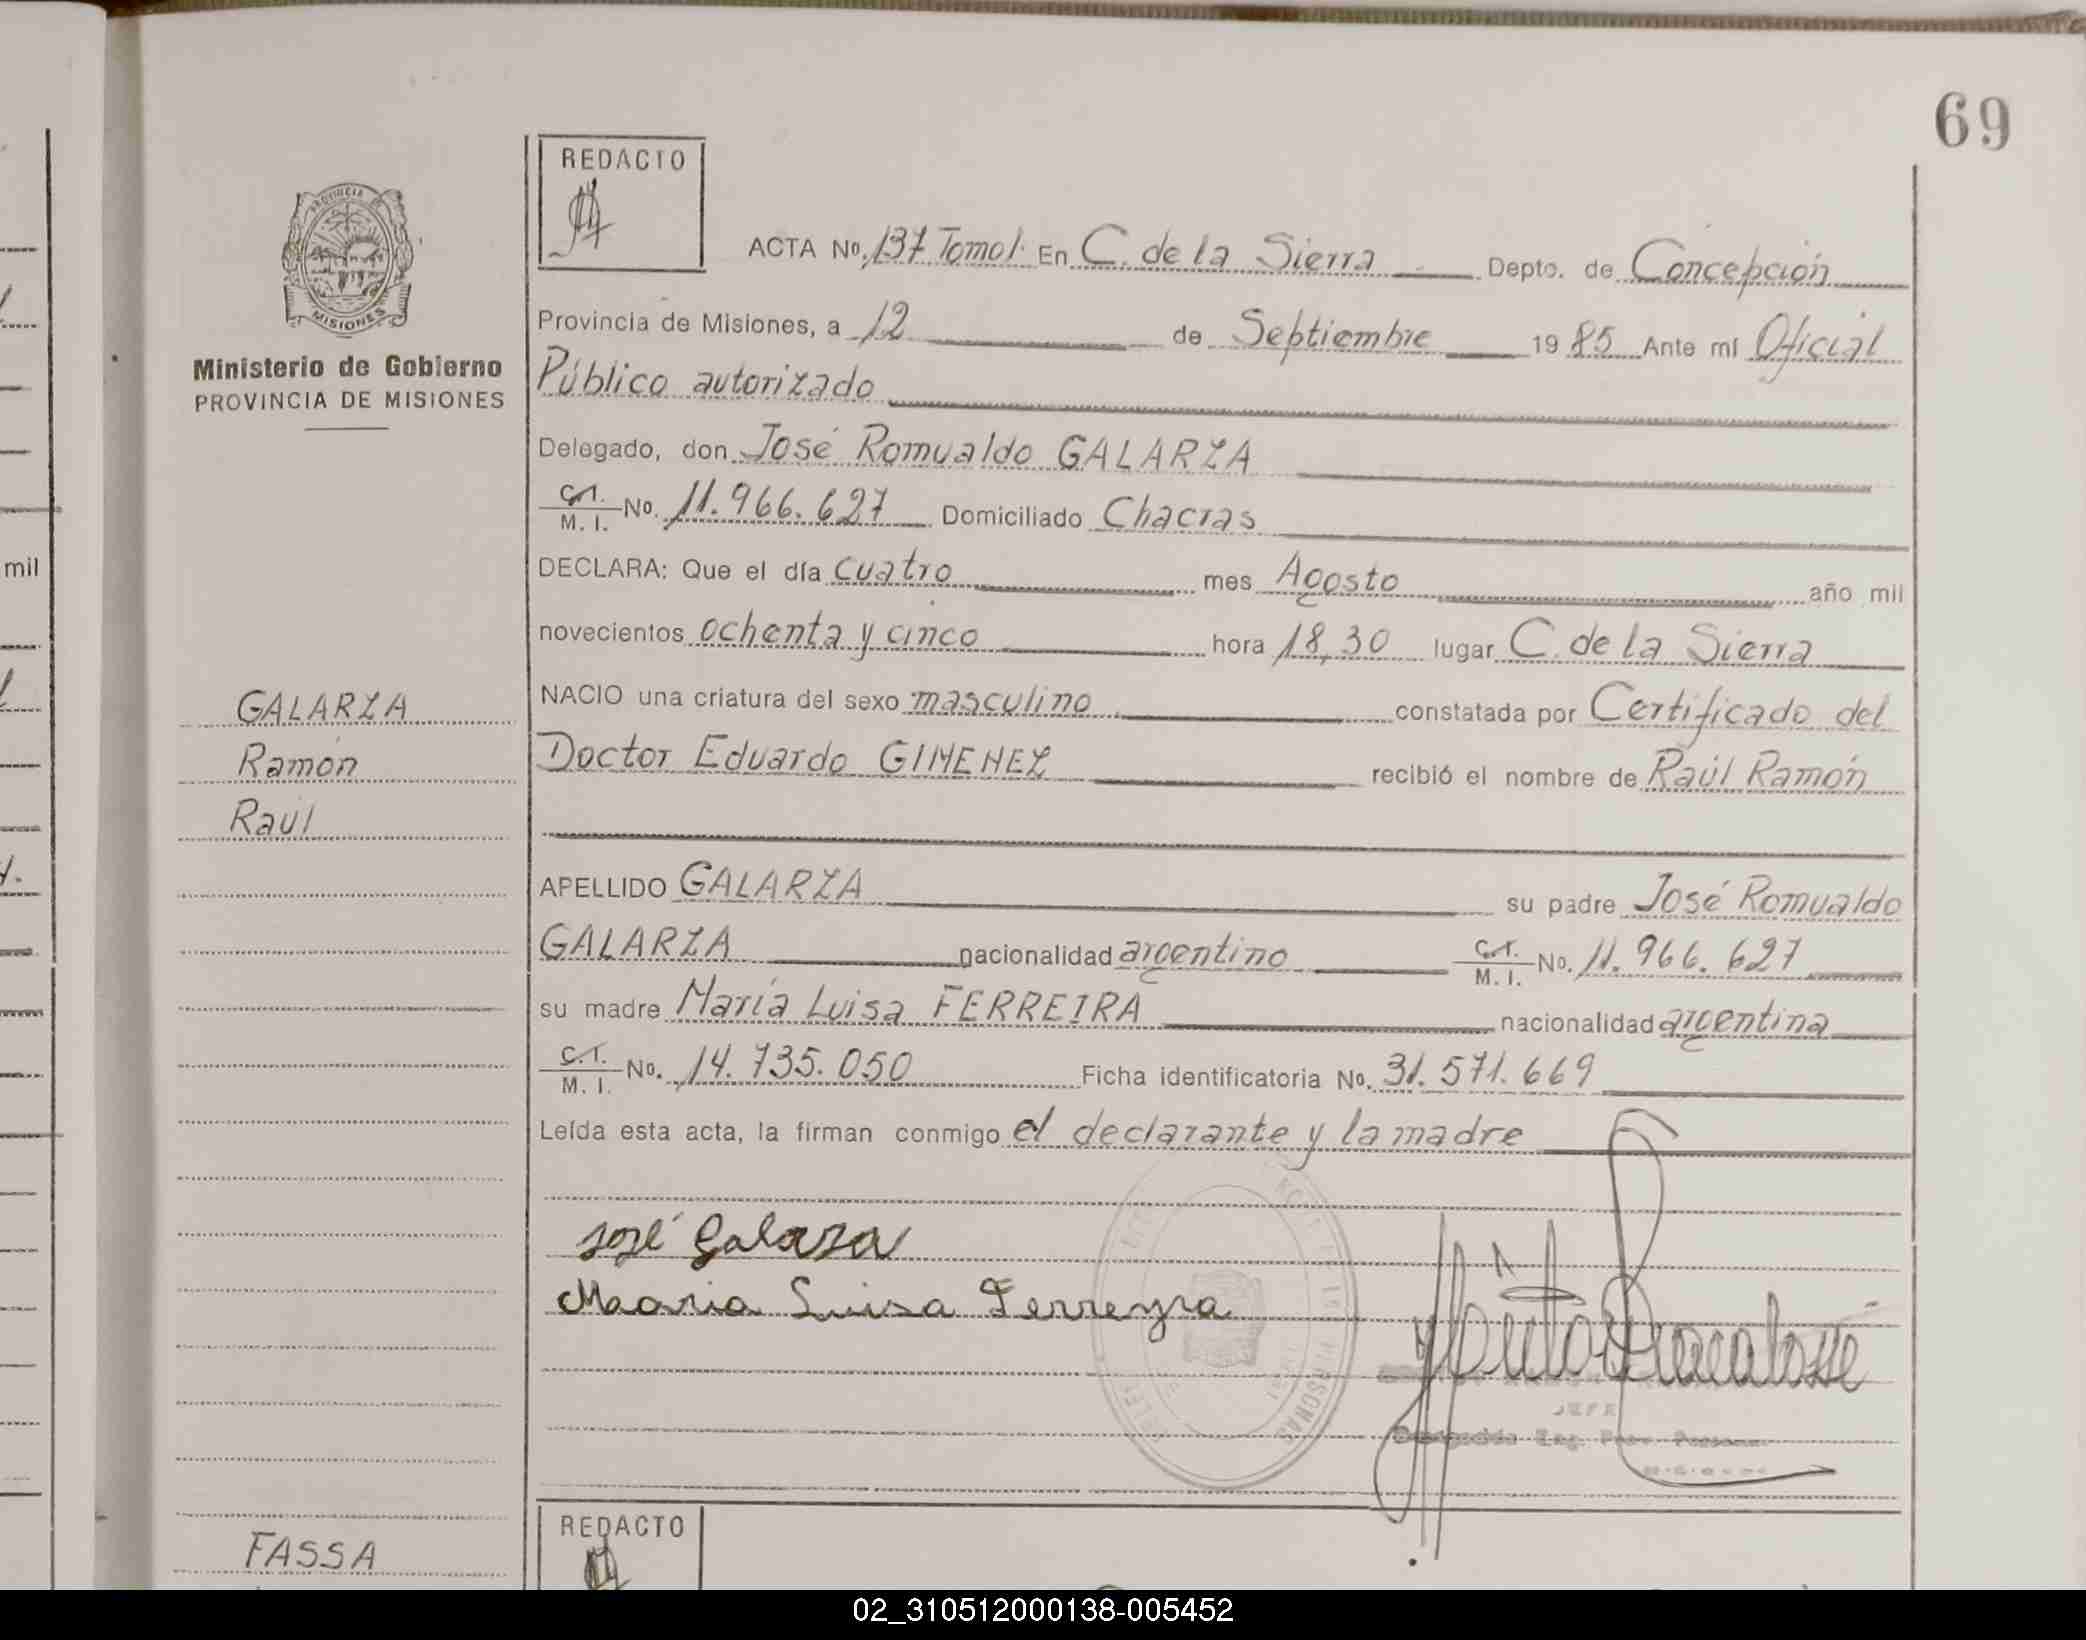 69
REDACTO
PROVINCIA
MISIONES
Ministerio de Gobierno
PROVINCIA DE MISIONES
ACTA No. 137 Tomo I. En C. de la Sierra Depto. de Concepción
Provincia de Misiones, a 12 de Septiembre 1985 Ante mí Oficial
Público autorizado
Delegado, don José Romualdo GALARZA
C.I. M.I. No. 11.966.627 Domiciliado Chacras
DECLARA: Que el día cuatro mes Agosto año mil
novecientos ochenta y cinco hora 18,30 lugar C. de la Sierra
NACIO una criatura del sexo masculino constatada por Certificado del
Doctor Eduardo GIMENEZ recibió el nombre de Raúl Ramón
GALARZA
Ramón
Raúl
APELLIDO GALARZA su padre José Romualdo
GALARZA nacionalidad argentino C.I. M.I. No. 11.966.627
su madre María Luisa FERREIRA nacionalidad argentina
C.I. M.I. No. 14.735.050 Ficha identificatoria No. 31.571.669
Leída esta acta, la firman conmigo el declarante y la madre
José Galarza
Maoria Luisa Ferreyra
PERSONAS
JEFE
mil
FASSA
REDACTO
02_310512000138-005452